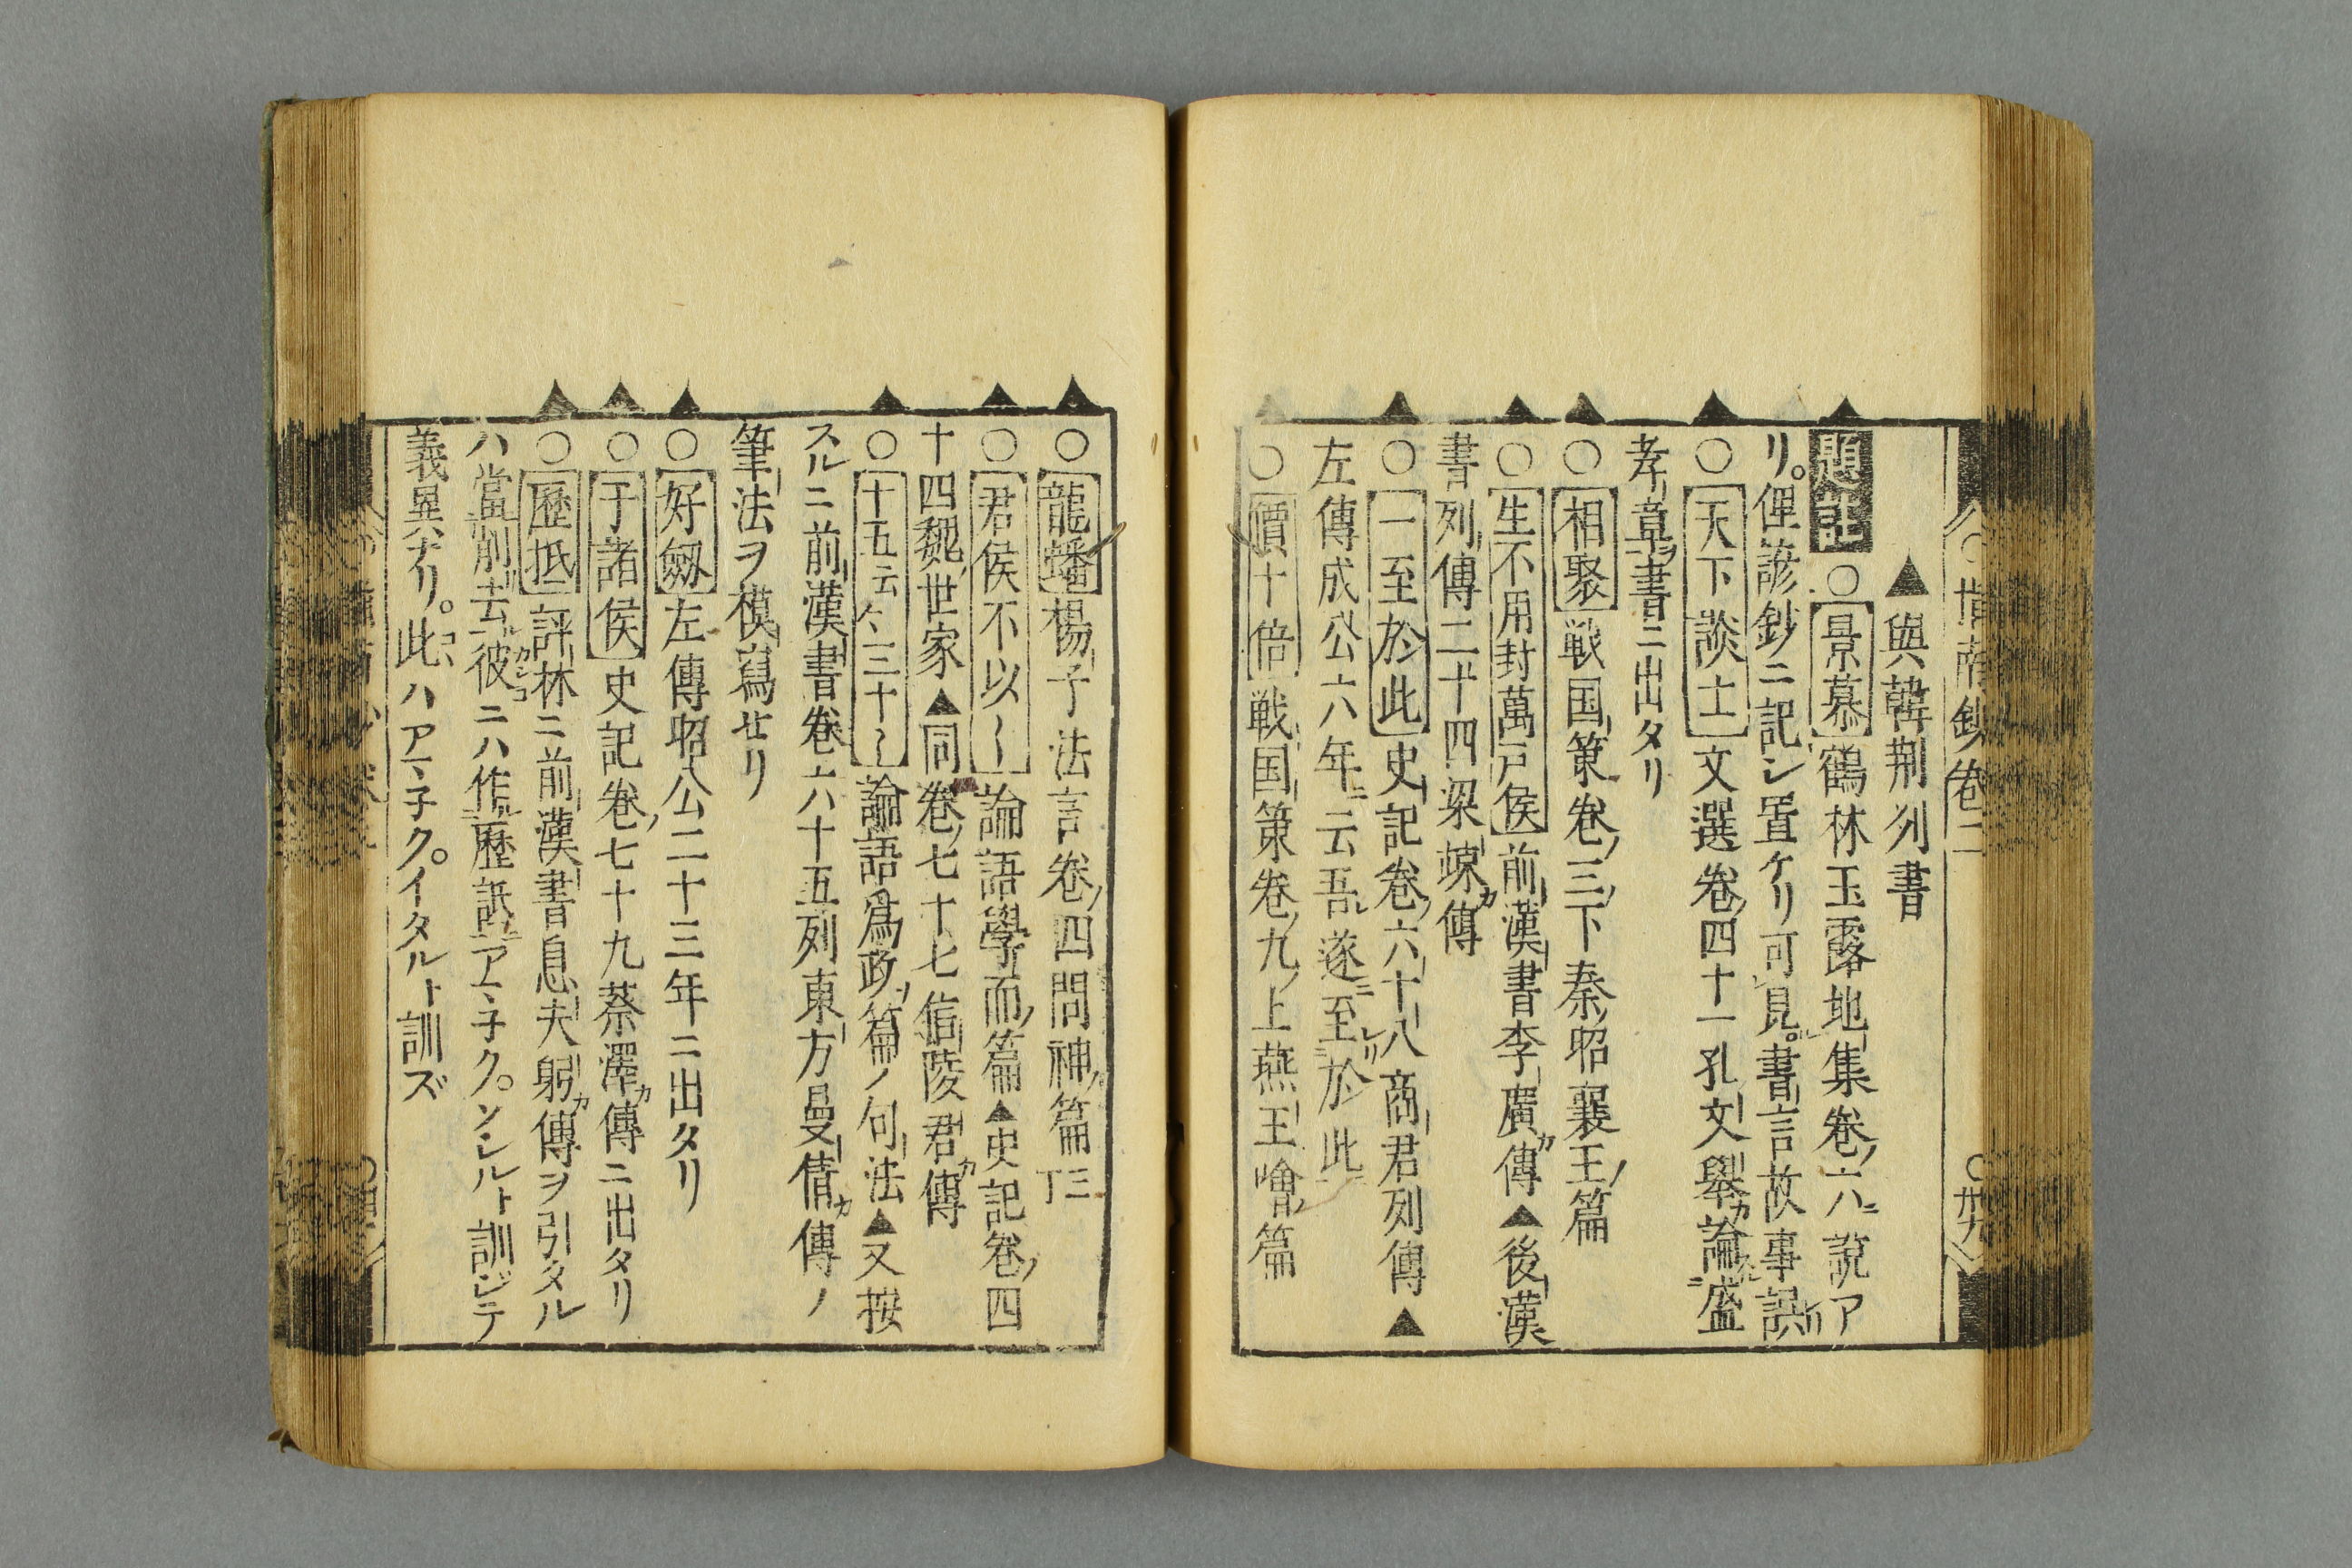 指南鈔卷二
○卅九
▲與韓荆列書
題註 ○景慕 鶴林玉露地集卷ノ六ニ説ア
リ。俚諺鈔ニ記シ置ケリ可レ見ル。書言故事誤
○天下談士 文選卷ノ四十一孔文擧カ論盛
孝章カ書ニ出タリ
○相聚 戦国策卷ノ三ノ下秦ノ昭襄王ノ篇
○生不用封萬戸侯 前漢書李廣カ傳▲後漢
書列傳二十四梁竦カ傳
○一至於此 史記卷ノ六十八商君列傳▲
左傳成公六年ニ云吾レ遂ニ至レリ於此ニ
○價十倍 戦国策卷ノ九ノ上燕王噲ノ篇
○龍蟠 楊子法言卷ノ四問神ノ篇三丁
○君侯不以〱 論語學而ノ篇▲史記卷ノ四
十四魏ノ世家▲同卷ノ七十七信陵君カ傳
○十五云々三十〱 論語爲政ノ篇ノ句法▲又按
スルニ前漢書卷六十五列東方曼倩カ傳ノ
筆法ヲ模寫セリ
○好劔 左傳昭公二十三年ニ出タリ
○于諸侯 史記卷ノ七十九蔡澤カ傳ニ出タリ
○歴抵 評林ニ前漢書息夫躬カ傳ヲ引タル
ハ當ニ削去ル彼カシコニハ作ル歴詆ニアマ子ク。ソシルト訓ジテ
義異ナリ。此コヽハアマ子ク。イタルト訓ズ